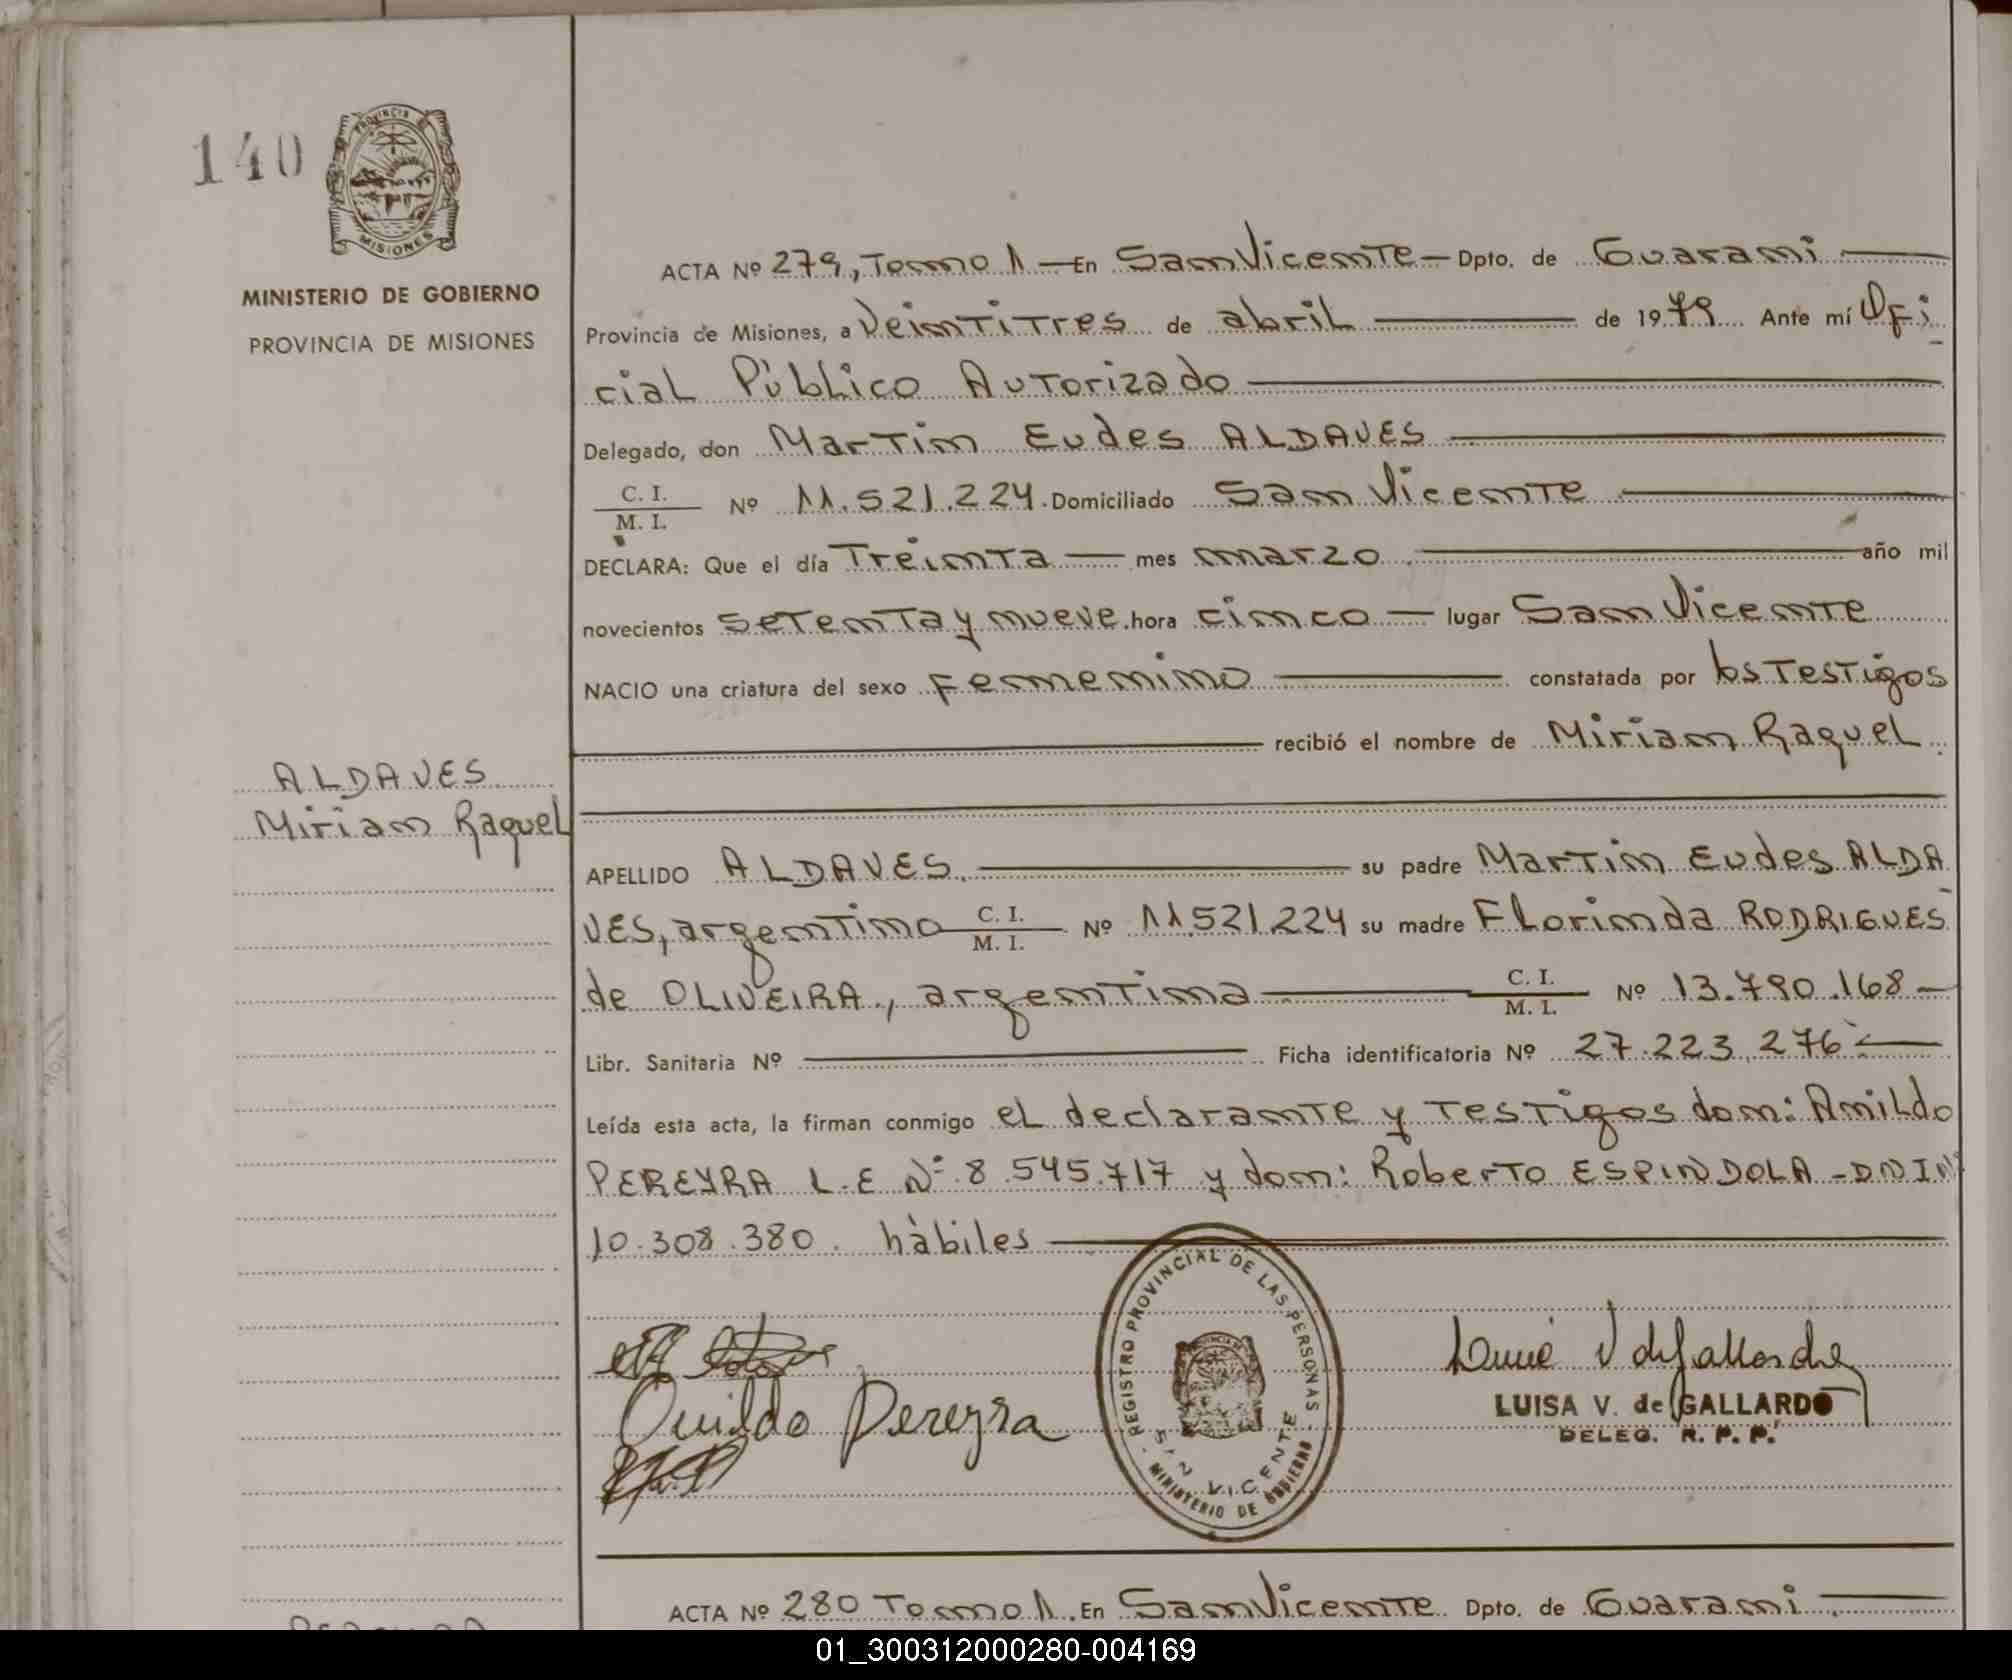 140
PROVINCIA DE
MISIONES
MINISTERIO DE GOBIERNO
PROVINCIA DE MISIONES
ALDAVES
Miriam Raquel
ACTA Nº 279, Tomo 1 — En San Vicente — Dpto. de Guarani
Provincia de Misiones, a Veintitres de abril de 1979 Ante mí Ofi
cial Público Autorizado
Delegado, don Martin Eudes ALDAVES
C. I.
M. I. Nº 11.521.224. Domiciliado San Vicente
DECLARA: Que el día Treinta — mes marzo año mil
novecientos setenta y nueve. hora cinco — lugar San Vicente
NACIO una criatura del sexo femenino constatada por los Testigos
recibió el nombre de Miriam Raquel.
APELLIDO ALDAVES. su padre Martin Eudes ALDA
VES, argentino C. I. M. I. Nº 11.521.224 su madre Florinda RODRIGUES
de OLIVEIRA, argentina C. I. M. I. Nº 13.790.168 —
Libr. Sanitaria Nº Ficha identificatoria Nº 27.223.276 —
Leída esta acta, la firman conmigo el declarante y testigos don: Anildo
PEREYRA L.E Nº 8.545.717 y don: Roberto ESPINDOLA - DNI Nº
10.308.380. hàbiles
Pereyra
REGISTRO PROVINCIAL DE LAS PERSONAS
SAN VICENTE
MINISTERIO DE GOBIERNO
LUISA V. de GALLARDO
DELEG. R. P. P.
ACTA Nº 280 Tomo 1. En San Vicente Dpto. de Guarani
01_300312000280-004169